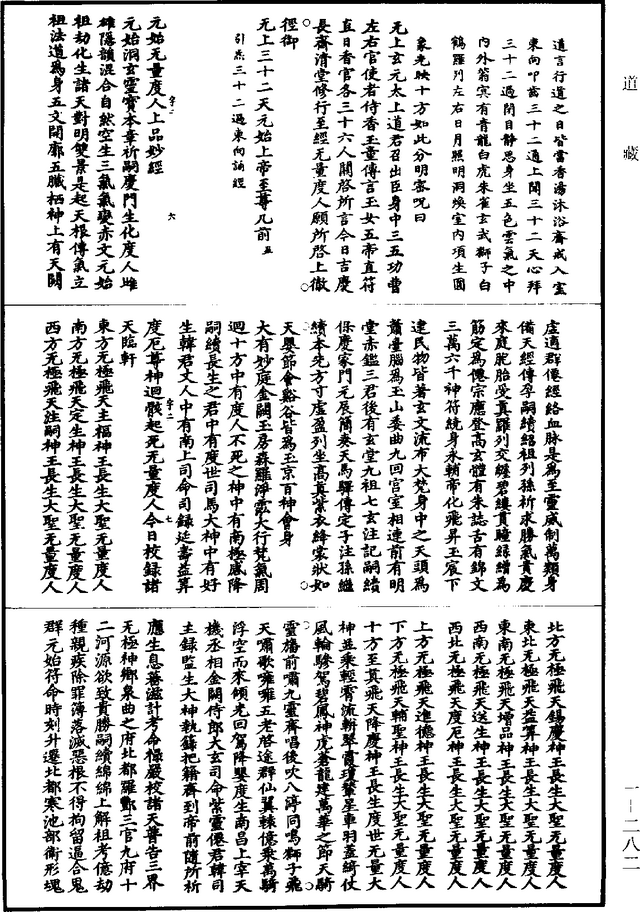 道藏
道言行道之日皆當香湯沐浴齋戒入室
東向叩齒三十二通上聞三十二天心拜
三十二過閉目靜思身坐五色雲氣之中
內外蓊冥有青龍白虎朱雀玄武獅子白
鶴羅列左右日月照明洞煥室內項生圓
象光映十方如此分明密呪曰
无上玄元太上道君召出臣身中三五功曹
左右官使者侍香玉童傳言玉女五帝直符
直日香官各三十六人關啓所言今日吉慶
長齋清堂修行至經无量度人願所啓上徹
徑御
无上三十二天元始上帝至尊几前五
引炁三十二過東向誦經
元始无量度人上品妙經
字二 六
元始洞玄靈寶本章祈嗣慶門生化度人雌
雄隱韻混合自然空生三氣氣變赤文元始
祖劫化生諸天對明雙景是起天根傳氣立
祖法道爲身五文開廓五臟栖神上有天關
虛通群僊經絡血脉是爲至靈威制萬類身
備天經傳孕嗣續紹祖列孫祈求勝氣貴慶
來庭胞胎受真羅列交纏碧縷貫瞳綠縷爲
筋定爲僊宗應登高玄體有朱誌舌有錦文
三萬六千神符統身永輔帝化飛昇玉宸下
建民物皆著玄文流布大梵身中之天頭爲
蕭臺腦爲玉山委曲九回宮室相連前有明
堂赤鑑三君後有玄堂九祖七玄注記嗣續
保慶家門元辰簡奏天馬驛傳定子注孫繼
續本先方寸虛盈列坐高真紫衣絳裳狀如
天嬰節會谿谷皆爲玉京百神會身
大有妙庭金闕玉房森羅淨泓大行梵氣周
迴十方中有度人不死之神中有南極感降
嗣續長生之君中有度世司馬大神中有好
生韓君丈人中有南上司命司錄延壽益算
字二 七
度厄尊神迴骸起死无量度人今日校錄諸
天臨軒
東方无極飛天主福神王長生大聖无量度人
南方无極飛天定生神王長生大聖无量度人
西方无極飛天註嗣神王長生大聖无量度人
北方无極飛天錫慶神王長生大聖无量度人
東北无極飛天益算神王長生大聖无量度人
東南无極飛天增品神王長生大聖无量度人
西南无極飛天送生神王長生大聖无量度人
西北无極飛天度厄神王長生大聖无量度人
上方无極飛天進德神王長生大聖无量度人
下方无極飛天輔聖神王長生大聖无量度人
十方至真飛天降慶神王長生度世无量大
神並乘輕霄流軿翠霞瓊輦星車羽蓋綺仗
風輪驂駕碧鳳神虎蒼龍建萬華之節天騎
靈旛前嘯九靈齊唱後吹八鸞同鳴獅子飛
天嘯歌嗈嗈五老啓途群仙翼轅億乘萬騎
浮空而來傾光回駕降嬰度生南昌上宰天
機丞相金闕侍郎大玄司命紫靈僊君韓司
主錄監生大神執錄把籍齊到帝前隨所祈
應生息蕃滋計考命祿嚴校諸天普告三界
无極神鄉泉曲之府北都羅酆三官九府十
二河源欲致貴勝嗣續綿綿上解祖考億劫
種親疾除罪簿落滅惡根不得拘留逼合鬼
群元始符命時刻升遷北都寒池部衛形魂
一—二八二